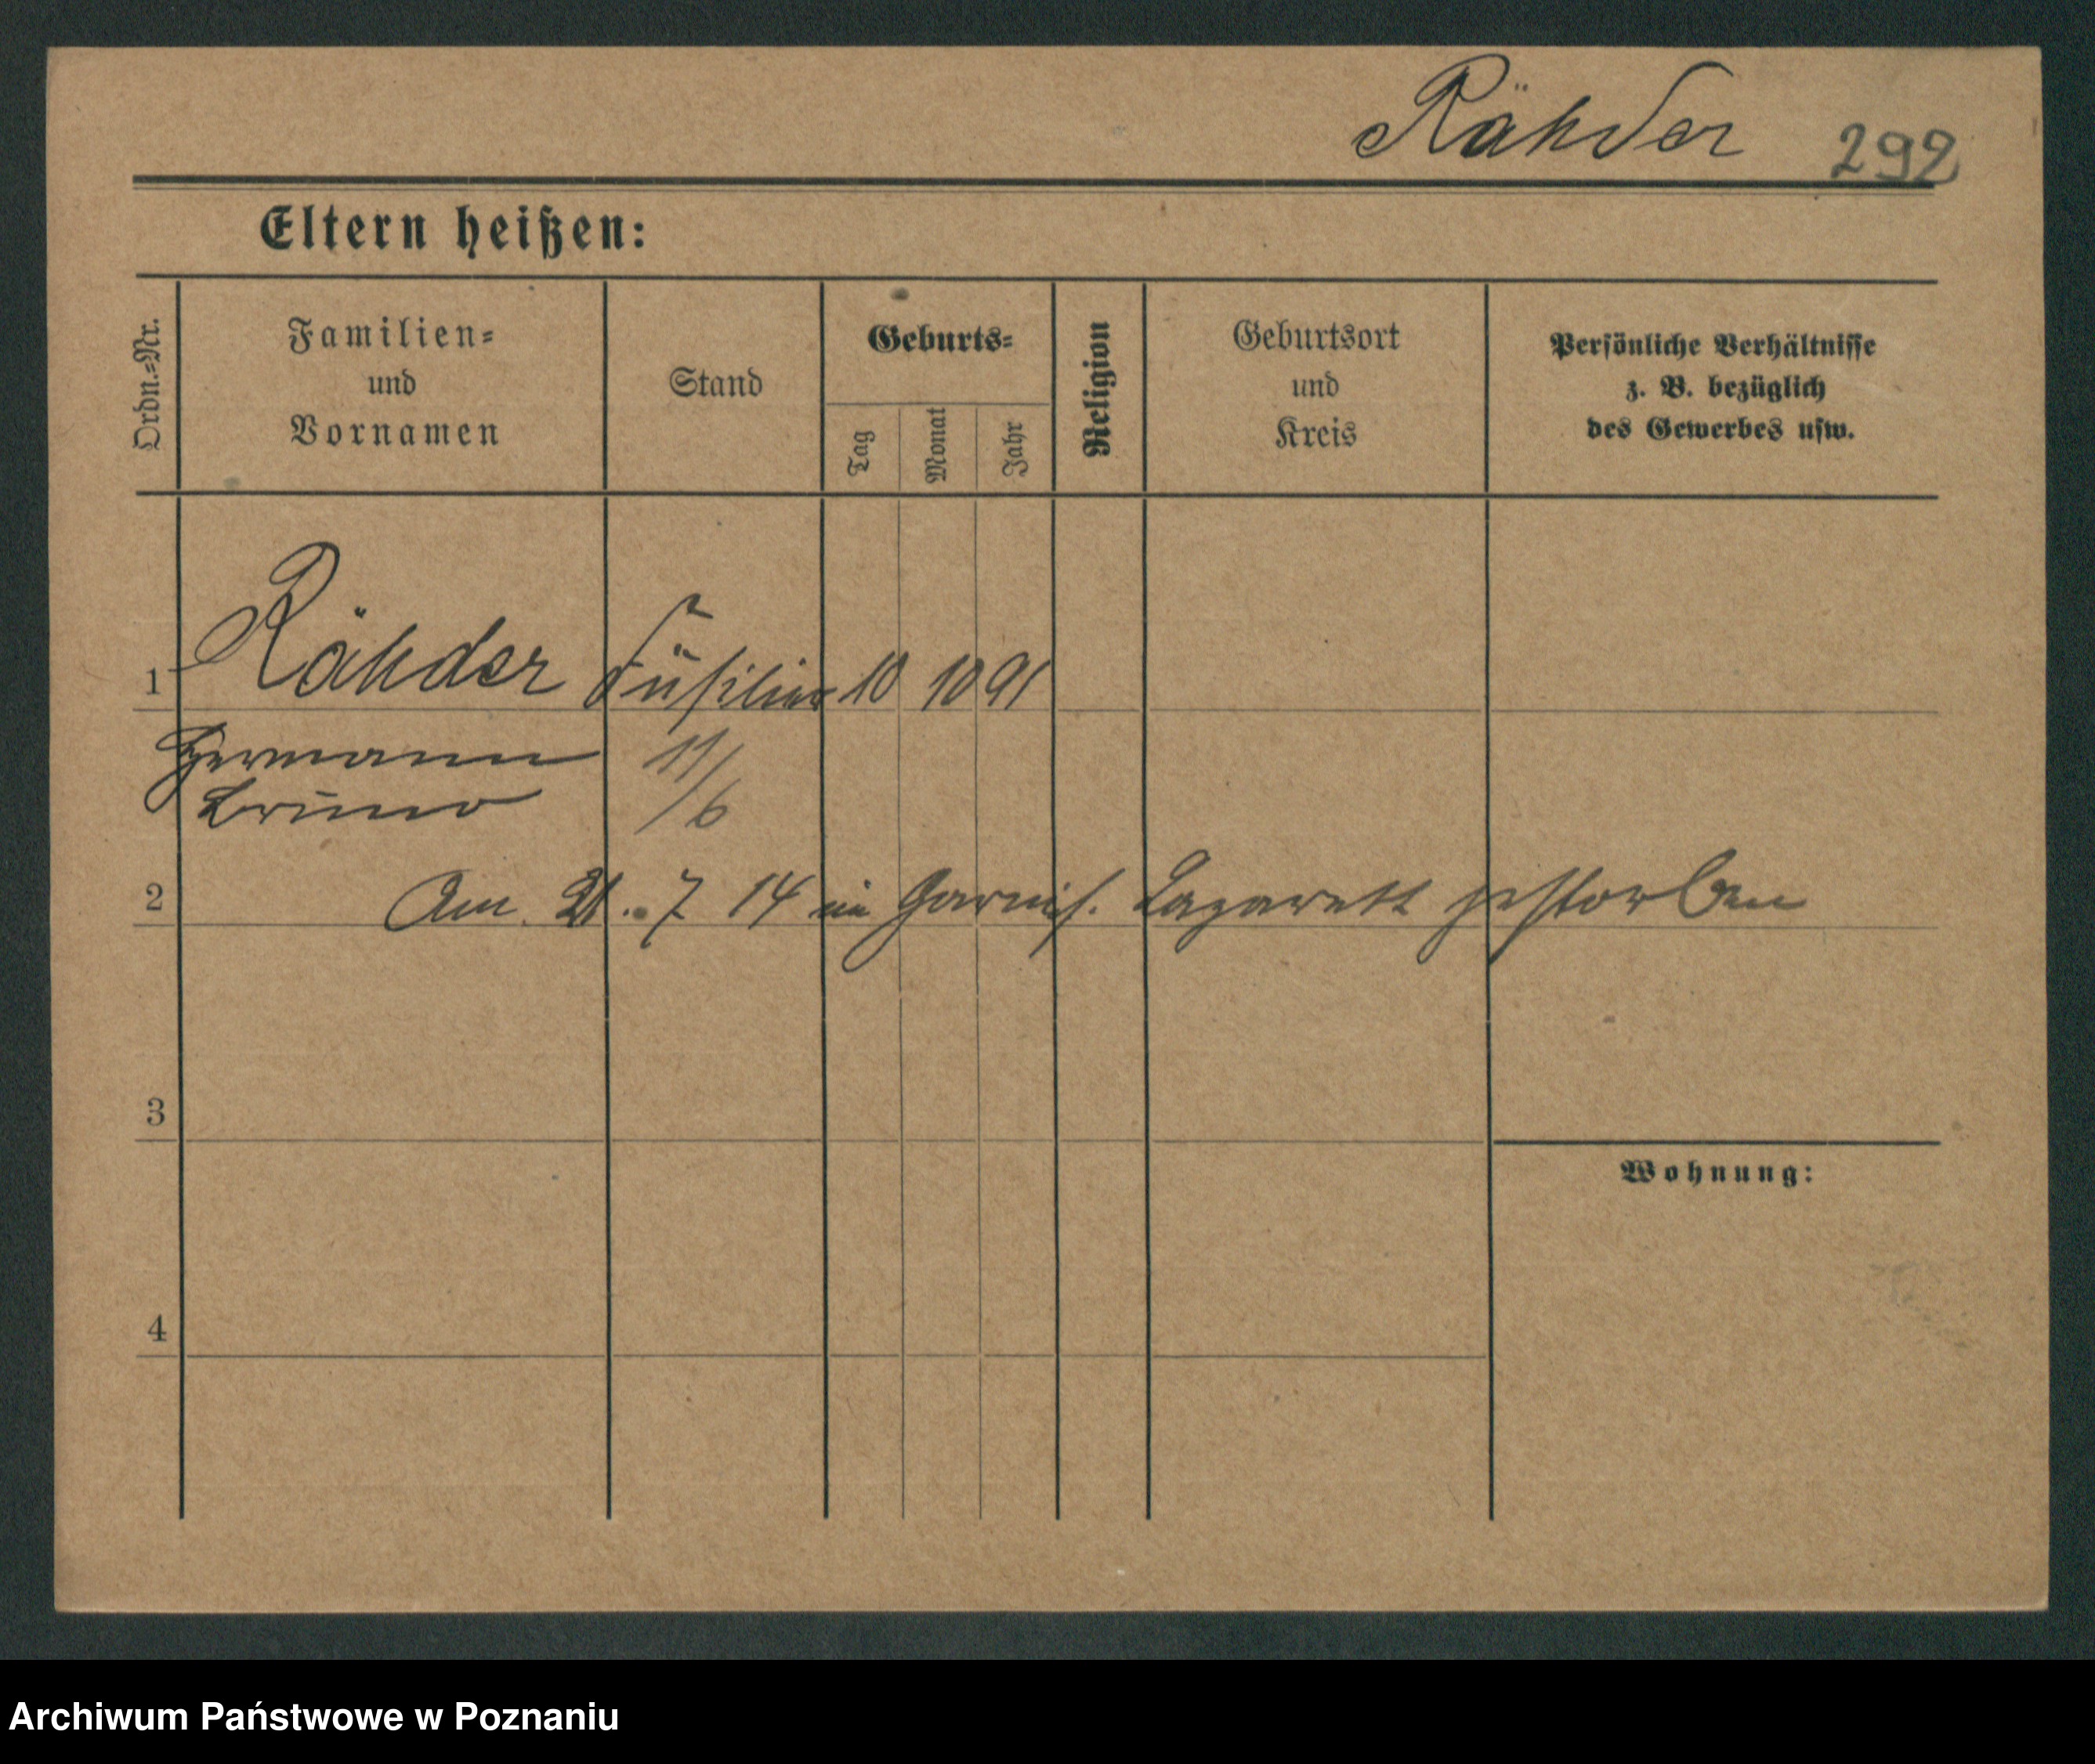 Rähder 292
Eltern heißen:
Ordn.-Nr.
Familien-
und
Vornamen
Stand
Geburts-
Tag
Monat
Jahr
Religion
Geburtsort
und
Kreis
Persönliche Verhältnisse
z. B. bezüglich
des Gewerbes usw.
1 Rähder Füsilier 10 10 91
Hermann 11/6
Bruno
2 Am 21. 7 14 im Garnis. Lazarett gestorben
3
Wohnung:
4
Archiwum Państwowe w Poznaniu